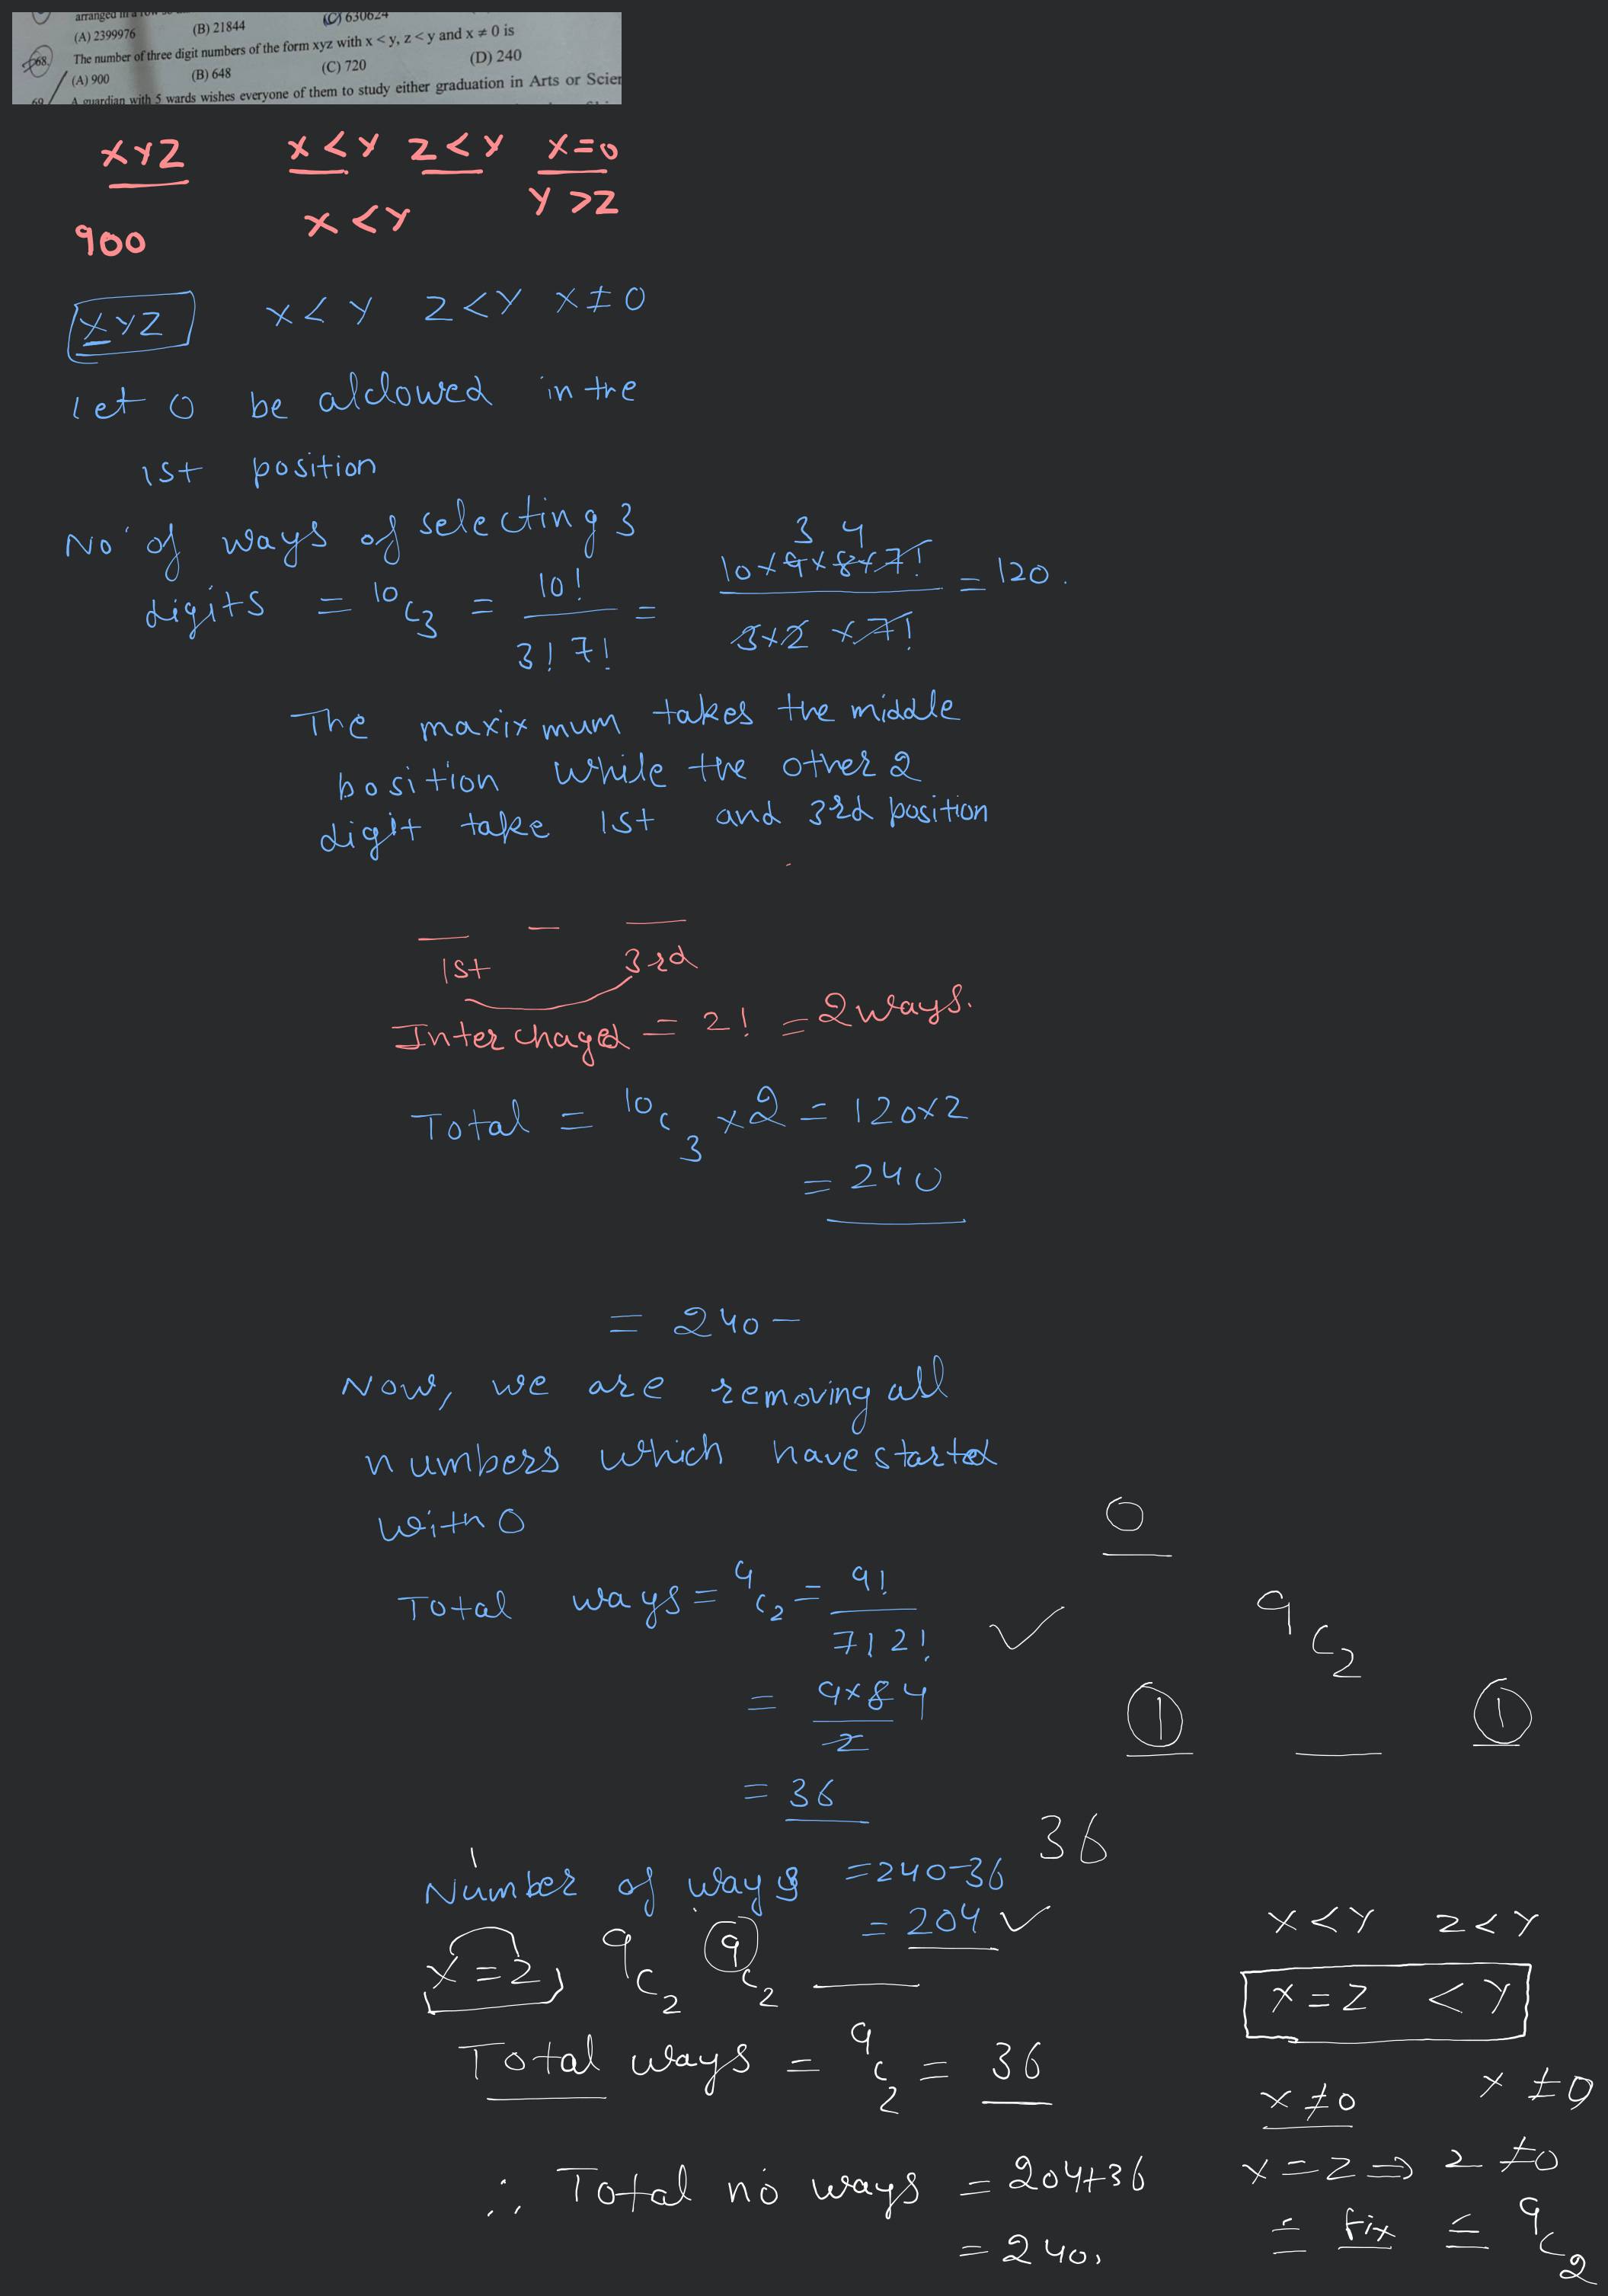 (A) 2399976 (B) 21844 (C) 630624
68. The number of three digit numbers of the form xyz with x < y, z < y and x ≠ 0 is
(A) 900 (B) 648 (C) 720 (D) 240
69 A guardian with 5 wards wishes everyone of them to study either graduation in Arts or Scien
XYZ X<Y Z<Y X=0
X<Y Y>Z
900
XYZ X<Y Z<Y X≠0
Let 0 be alclowed in the
1st position
No of ways of selecting 3
digits = ¹⁰C₃ = 10!/3!7! = 10×9×8×7!/3×2×7! = 120.
3 4
The maxixmum takes the middle
position while the other 2
digit take 1st and 3rd position
1st 3rd
Interchaged = 2! = 2 ways.
Total = ¹⁰C₃ ×2 = 120×2
= 240
= 240 -
Now, we are removing all
numbers which have started
with 0
0
Total ways = ⁹C₂ = 9!/7!2!
⁹C₂
= 9×8 4/2
1 1
= 36
36
Number of ways = 240-36
= 204
X=Z, ⁹C₂ ⁹C₂
X<Y Z<Y
X=Z <Y
Total ways = ⁹C₂ = 36
X≠0 X≠0
∴ Total no ways = 204+36
X=Z ⇒ Z≠0
= 240.
= fix = ⁹C₂